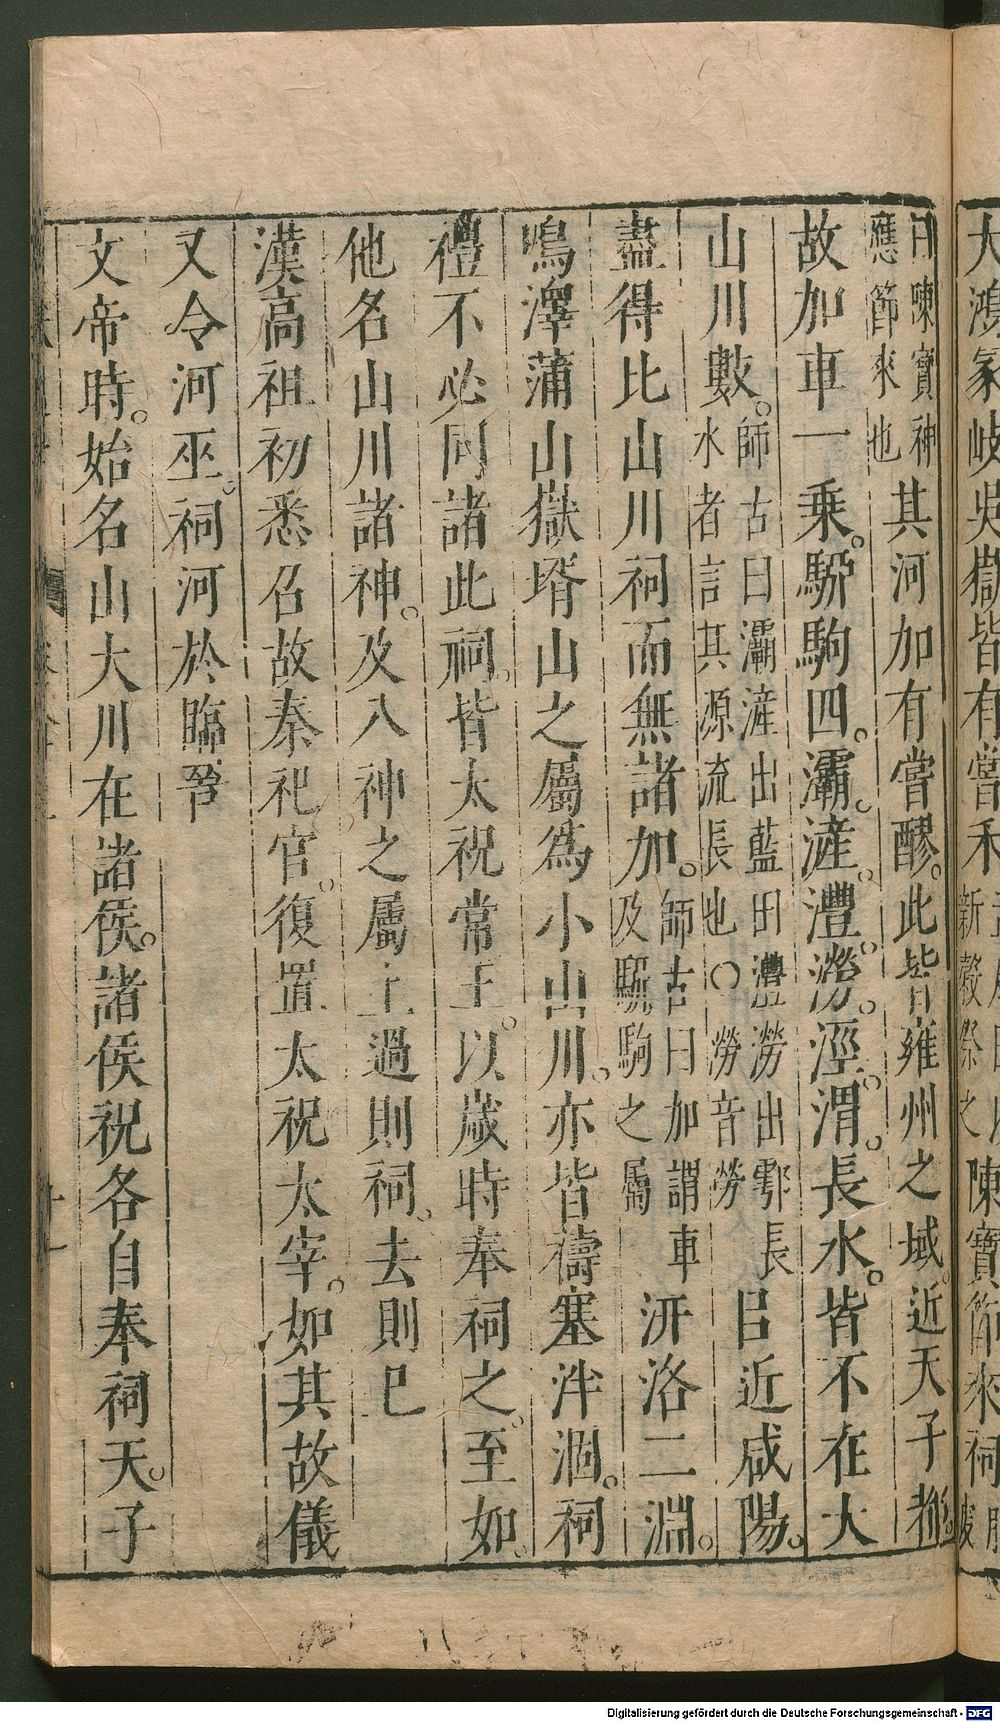 大鴻冢岐吳嶽皆有嘗禾
新穀祭之
陳寶節來祠
曰陳寶神
應節來也
其河加有嘗醪。此皆雍州之域。近天子
故加車一乗。駵駒四。灞。滻。澧。澇。涇。渭。長水。皆不在大
山川數。
師古曰灞滻出藍田澧澇出鄠長
水者言其源流長也○澇音勞
㠯近咸陽。
盡得比山川祠而無諸加。
師古曰加謂車
及駵駒之屬
汧洛二淵。
鳴澤蒲山嶽壻山之屬爲小山川。亦皆禱塞泮涸。祠
禮不必同諸此祠。皆太祝常主。以歲時奉祠之。至如。
他名山川諸神。及八神之屬上過則祠。去則已
漢高祖初悉召故秦祀官。復置太祝太宰。如其故儀
又令河巫。祠河於臨晉
文帝時。始名山大川在諸侯。諸侯祝各自奉祠天。子
Digitalisierung gefördert durch die Deutsche Forschungsgemeinschaft - DFG